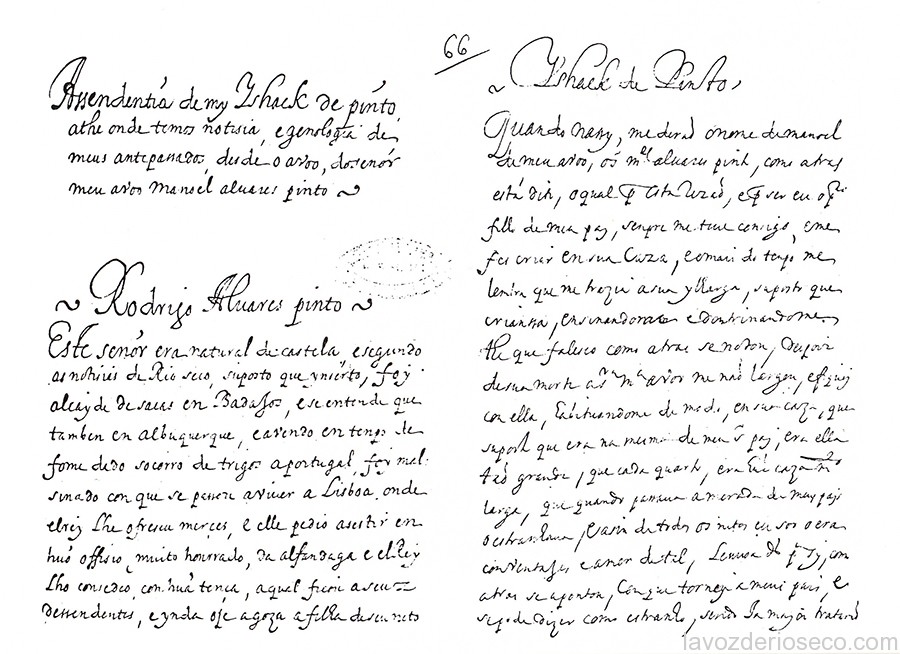 66
Assendentia de my Yshack de pinto,
athe onde temos notisia, e genologia de
meus antepasados, desde o avoo, do senór
meu avoo Manoel alvares pinto
Rodrigo Alvares pinto
Este senór era natural de castela, e segundo
as notisias de Rio seco, suposto que ynsérto, foy
alcayde de sacas en Badajos, e se entende que
tambem en albuquerque, e avendo en tenpo de
fome dado socorro de trigos a portugal, foy mal-
sinado con que se a viver a Lisboa, onde
elrey Lhe ofreseu merces, e elle pedio asestir en
huó offisio, muito honrrado, da alfandaga e elRey
Lho consedeo, con huá tenca, aqual ficou a seus
dessendentes, e eynda oje a goza a filla de seu neto
Yshack de Pinto,
Quando nasy, me deraó o nome de manoel
de meu avoo, o s.r m.el alvares pinto, como atras
está dito, o qual p esta rezaó, e p ser eu o p.ro
fillo de meu pay, senpre me teve consigo, e me
fes criar en sua Caza, e o mais do tenpo me
lembra que me trazia a sua yllarga, suposto que
crianssa, ensinandome e doutrinandome,
the que faleseo como atras se notou, Depois
de sua morte a s.ra m avoo me naó largou, e
con ella, de modo, en sua caza, que
suposto que era na mesma de meu s.r pay, era ella
taó grande, que cada quarto, era huá caza m.to
larga, que quando pasava a morada de meus pays
o estranhava, e asin de todos os netos eu so o era
con ventajes e amor de tal, con
atras se aponton, Con que torney a meus pais, e
se pode dizer como estranho, sendo La mayor trataró
lavozderioseco.com